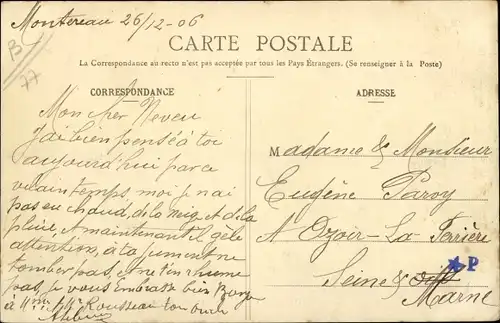 Montereau 26/12-06
B
77
CARTE POSTALE
La Correspondance au recto n'est pas acceptée par tous les Pays Étrangers. (Se renseigner à la Poste)
CORRESPONDANCE
Mon cher Neveu
J'ai bien pensé à toi
aujourd'hui par ce
vilain temps, moi je n'ai
pas eu chaud, de la neige et de la
pluie, et maintenant il gèle
attention, à ta jument ne
tomber pas, et ne t'en rhume
pas, je vous embrasse bien
à Mme Mr Rousseau ton oncle
ADRESSE
Madame & Monsieur
Eugène Paroy
A Ozoir-La-Ferrière
Seine & Oise
Marne
P